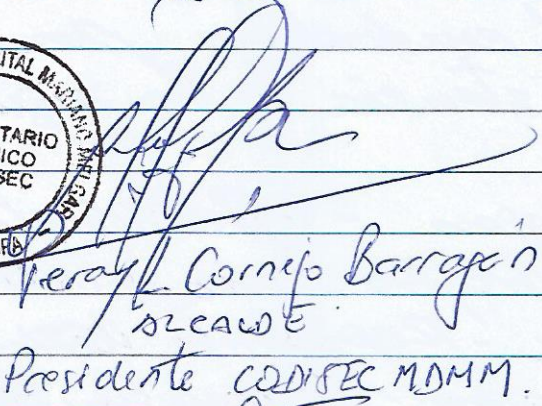 ITAL MARIANO MELGAR
TARIO
ICO
SEC
Percy L Cornejo Barragán
ALCALDE
Presidente CODISEC MDMM.